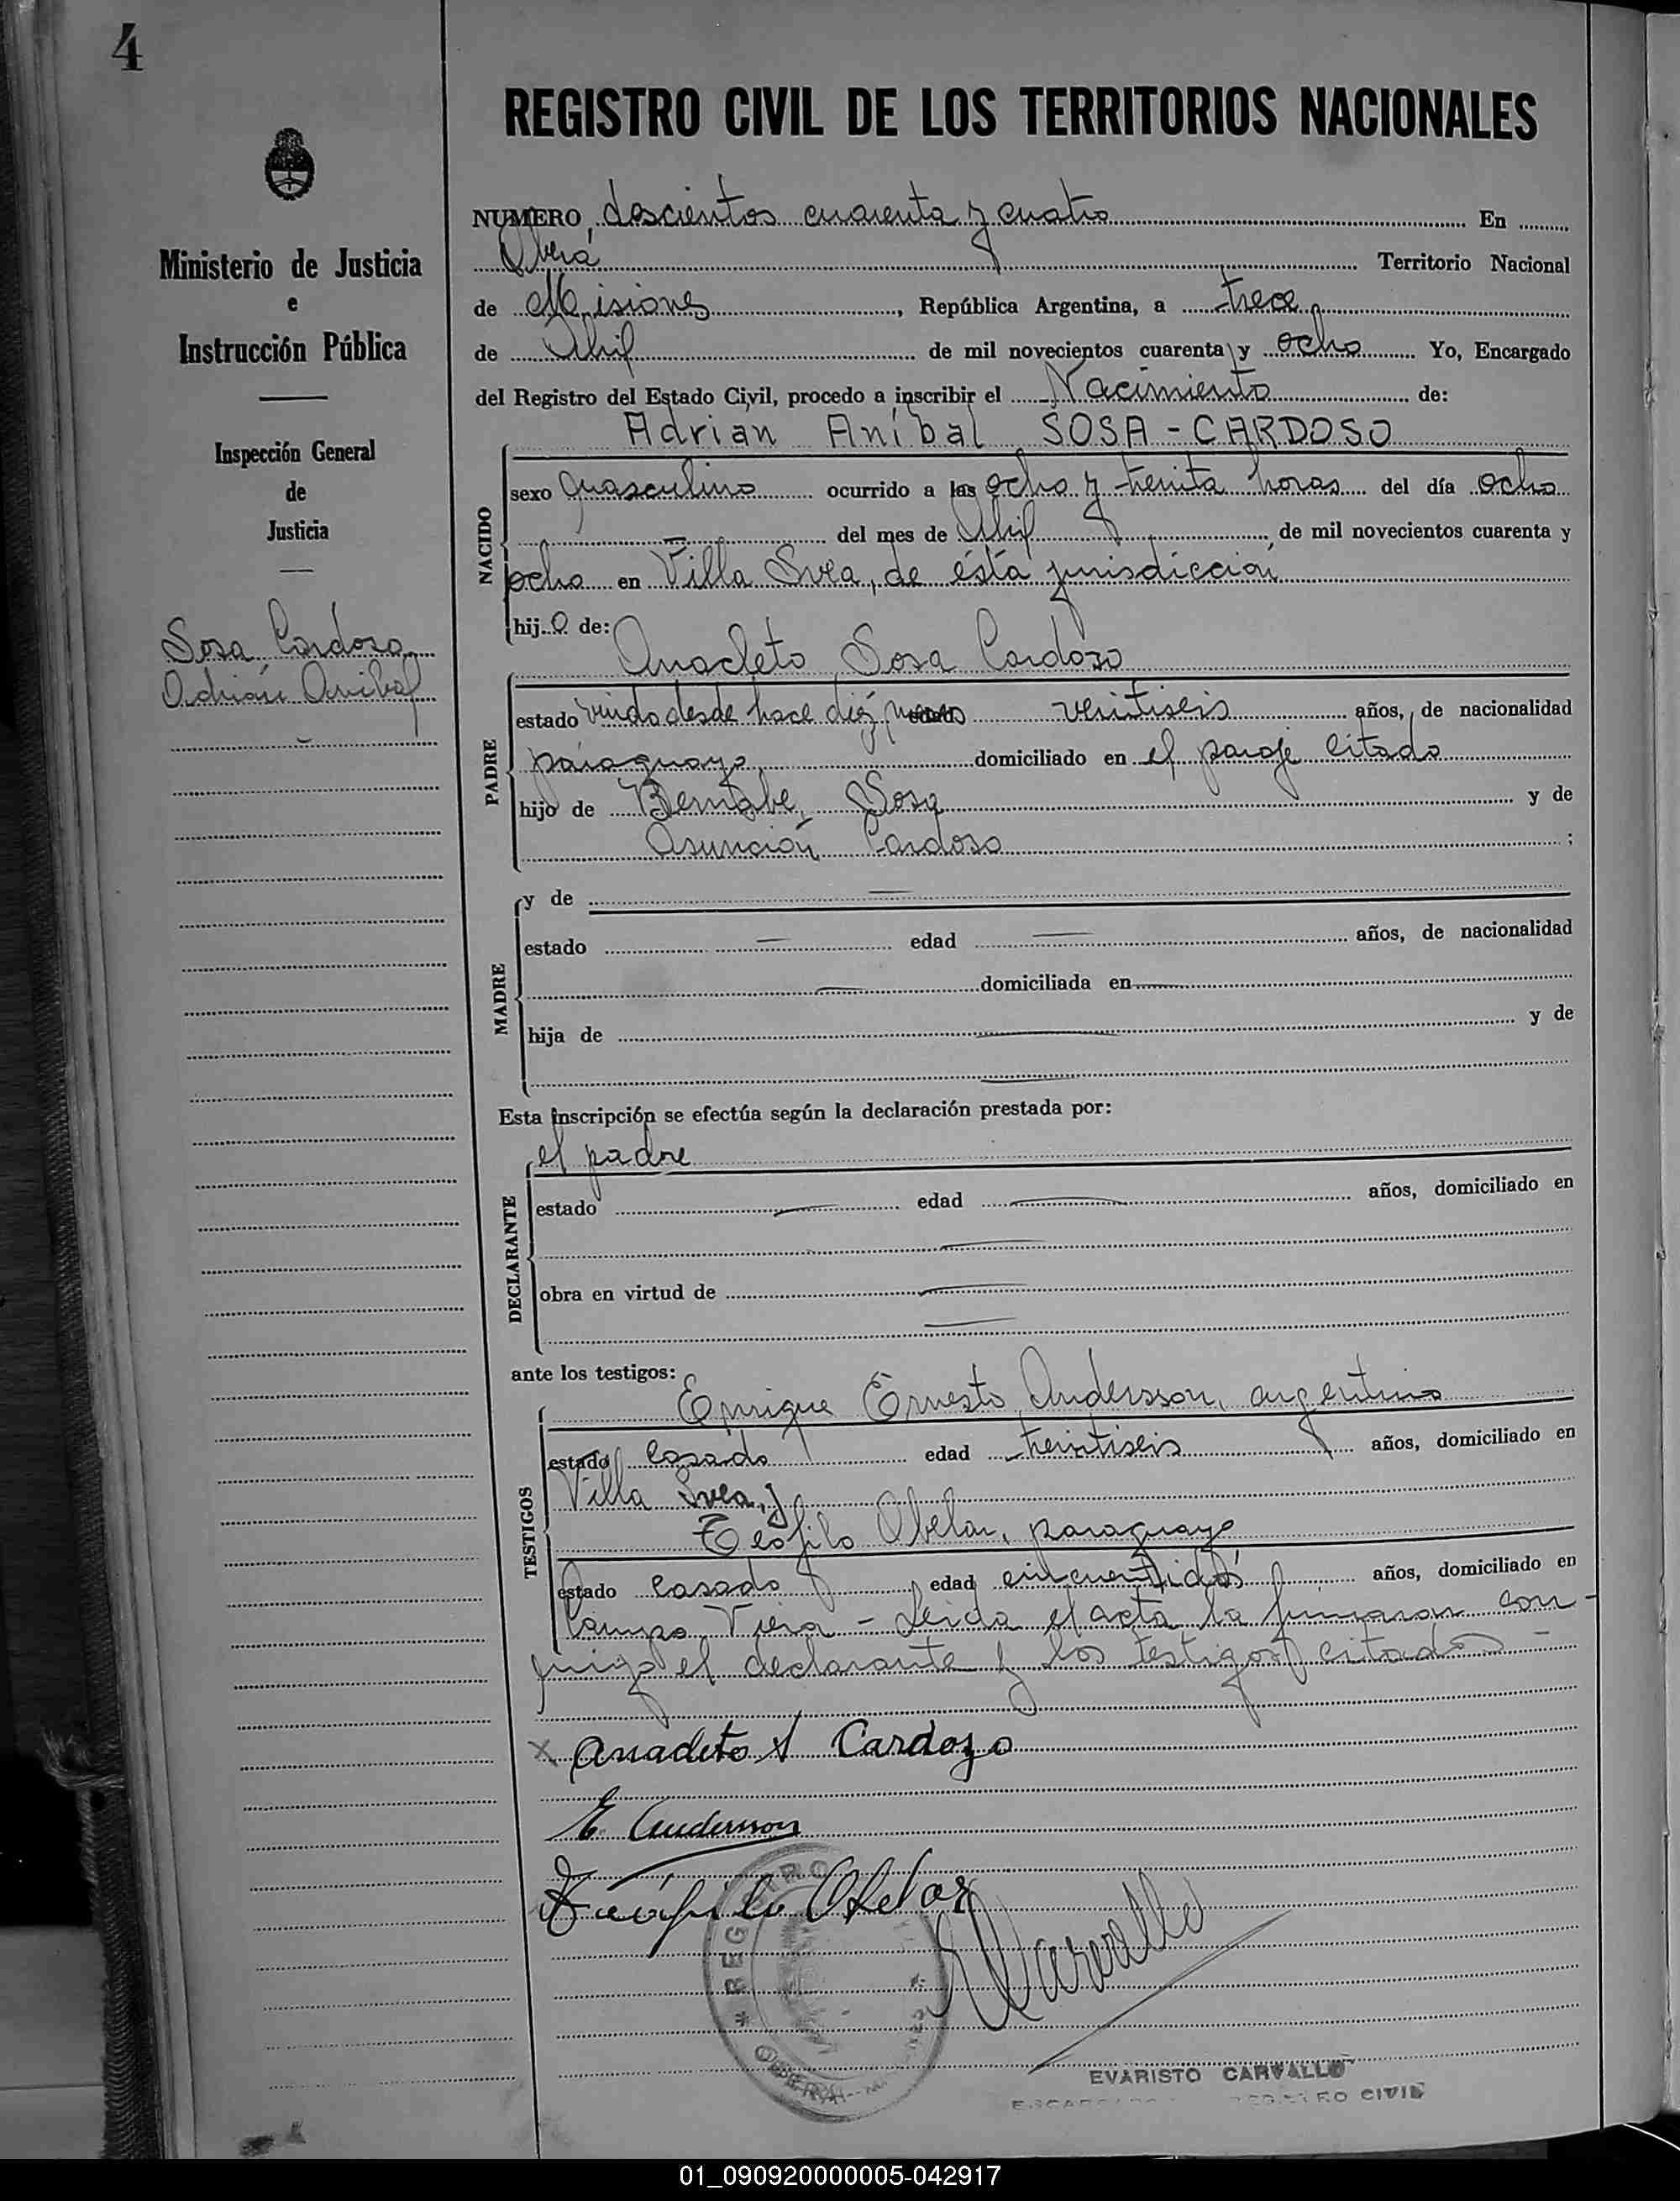 4
REGISTRO CIVIL DE LOS TERRITORIOS NACIONALES
Ministerio de Justicia
e
Instrucción Pública
Inspección General
de
Justicia
Sosa Cardoso
Adrián Anibal
NUMERO doscientos cuarenta y cuatro En
Oberá Territorio Nacional
de Misiones, República Argentina, a trece
de Abril de mil novecientos cuarenta y ocho Yo, Encargado
del Registro del Estado Civil, procedo a inscribir el Nacimiento de:
Adrian Aníbal SOSA - CARDOSO
NACIDO
sexo masculino ocurrido a las ocho y treinta horas del día ocho
del mes de Abril de mil novecientos cuarenta y
ocho en Villa Svea, de ésta jurisdicción
hijo de:
Anacleto Sosa Cardozo
PADRE
estado viudo desde hace diez meses veintiseis años, de nacionalidad
paraguayo domiciliado en el paraje citado
hijo de Bernabe Sosa y de
Asunción Cardoso ;
MADRE
y de —
estado — edad — años, de nacionalidad
— domiciliada en —
hija de — y de
—
Esta inscripción se efectúa según la declaración prestada por:
el padre
DECLARANTE
estado — edad — años, domiciliado en
—
obra en virtud de —
—
ante los testigos:
TESTIGOS
Enrique Ernesto Andersson, argentino
estado casado edad treintiseis años, domiciliado en
Villa Svea, y
Teófilo Obelar, paraguayo
estado casado edad cincuentidós años, domiciliado en
Campo Viera - Leida el acta la firmaron con-
migo el declarante y los testigos citados -
x Anacleto S Cardozo
E. Andersson
Obelar
Carvallo
REGISTRO
EVARISTO CARVALLO
REGISTRO CIVIL
01_090920000005-042917